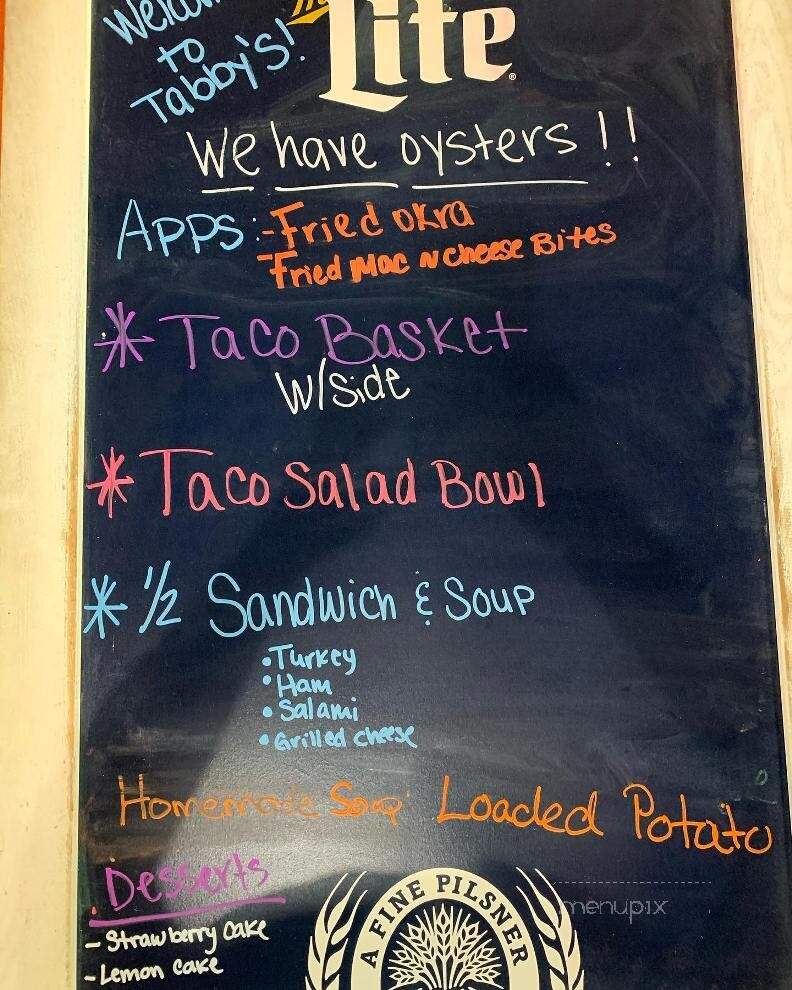 to
Tabby's!
Lite
We have oysters!!
Apps: -Fried okra
-Fried Mac N cheese Bites
* Taco Basket
W/Side
* Taco Salad Bowl
* 1/2 Sandwich & Soup
• Turkey
• Ham
• Salami
• Grilled cheese
Homemade Soup Loaded Potato
Desserts
- Strawberry cake
- Lemon cake
A FINE PILSNER
menupix